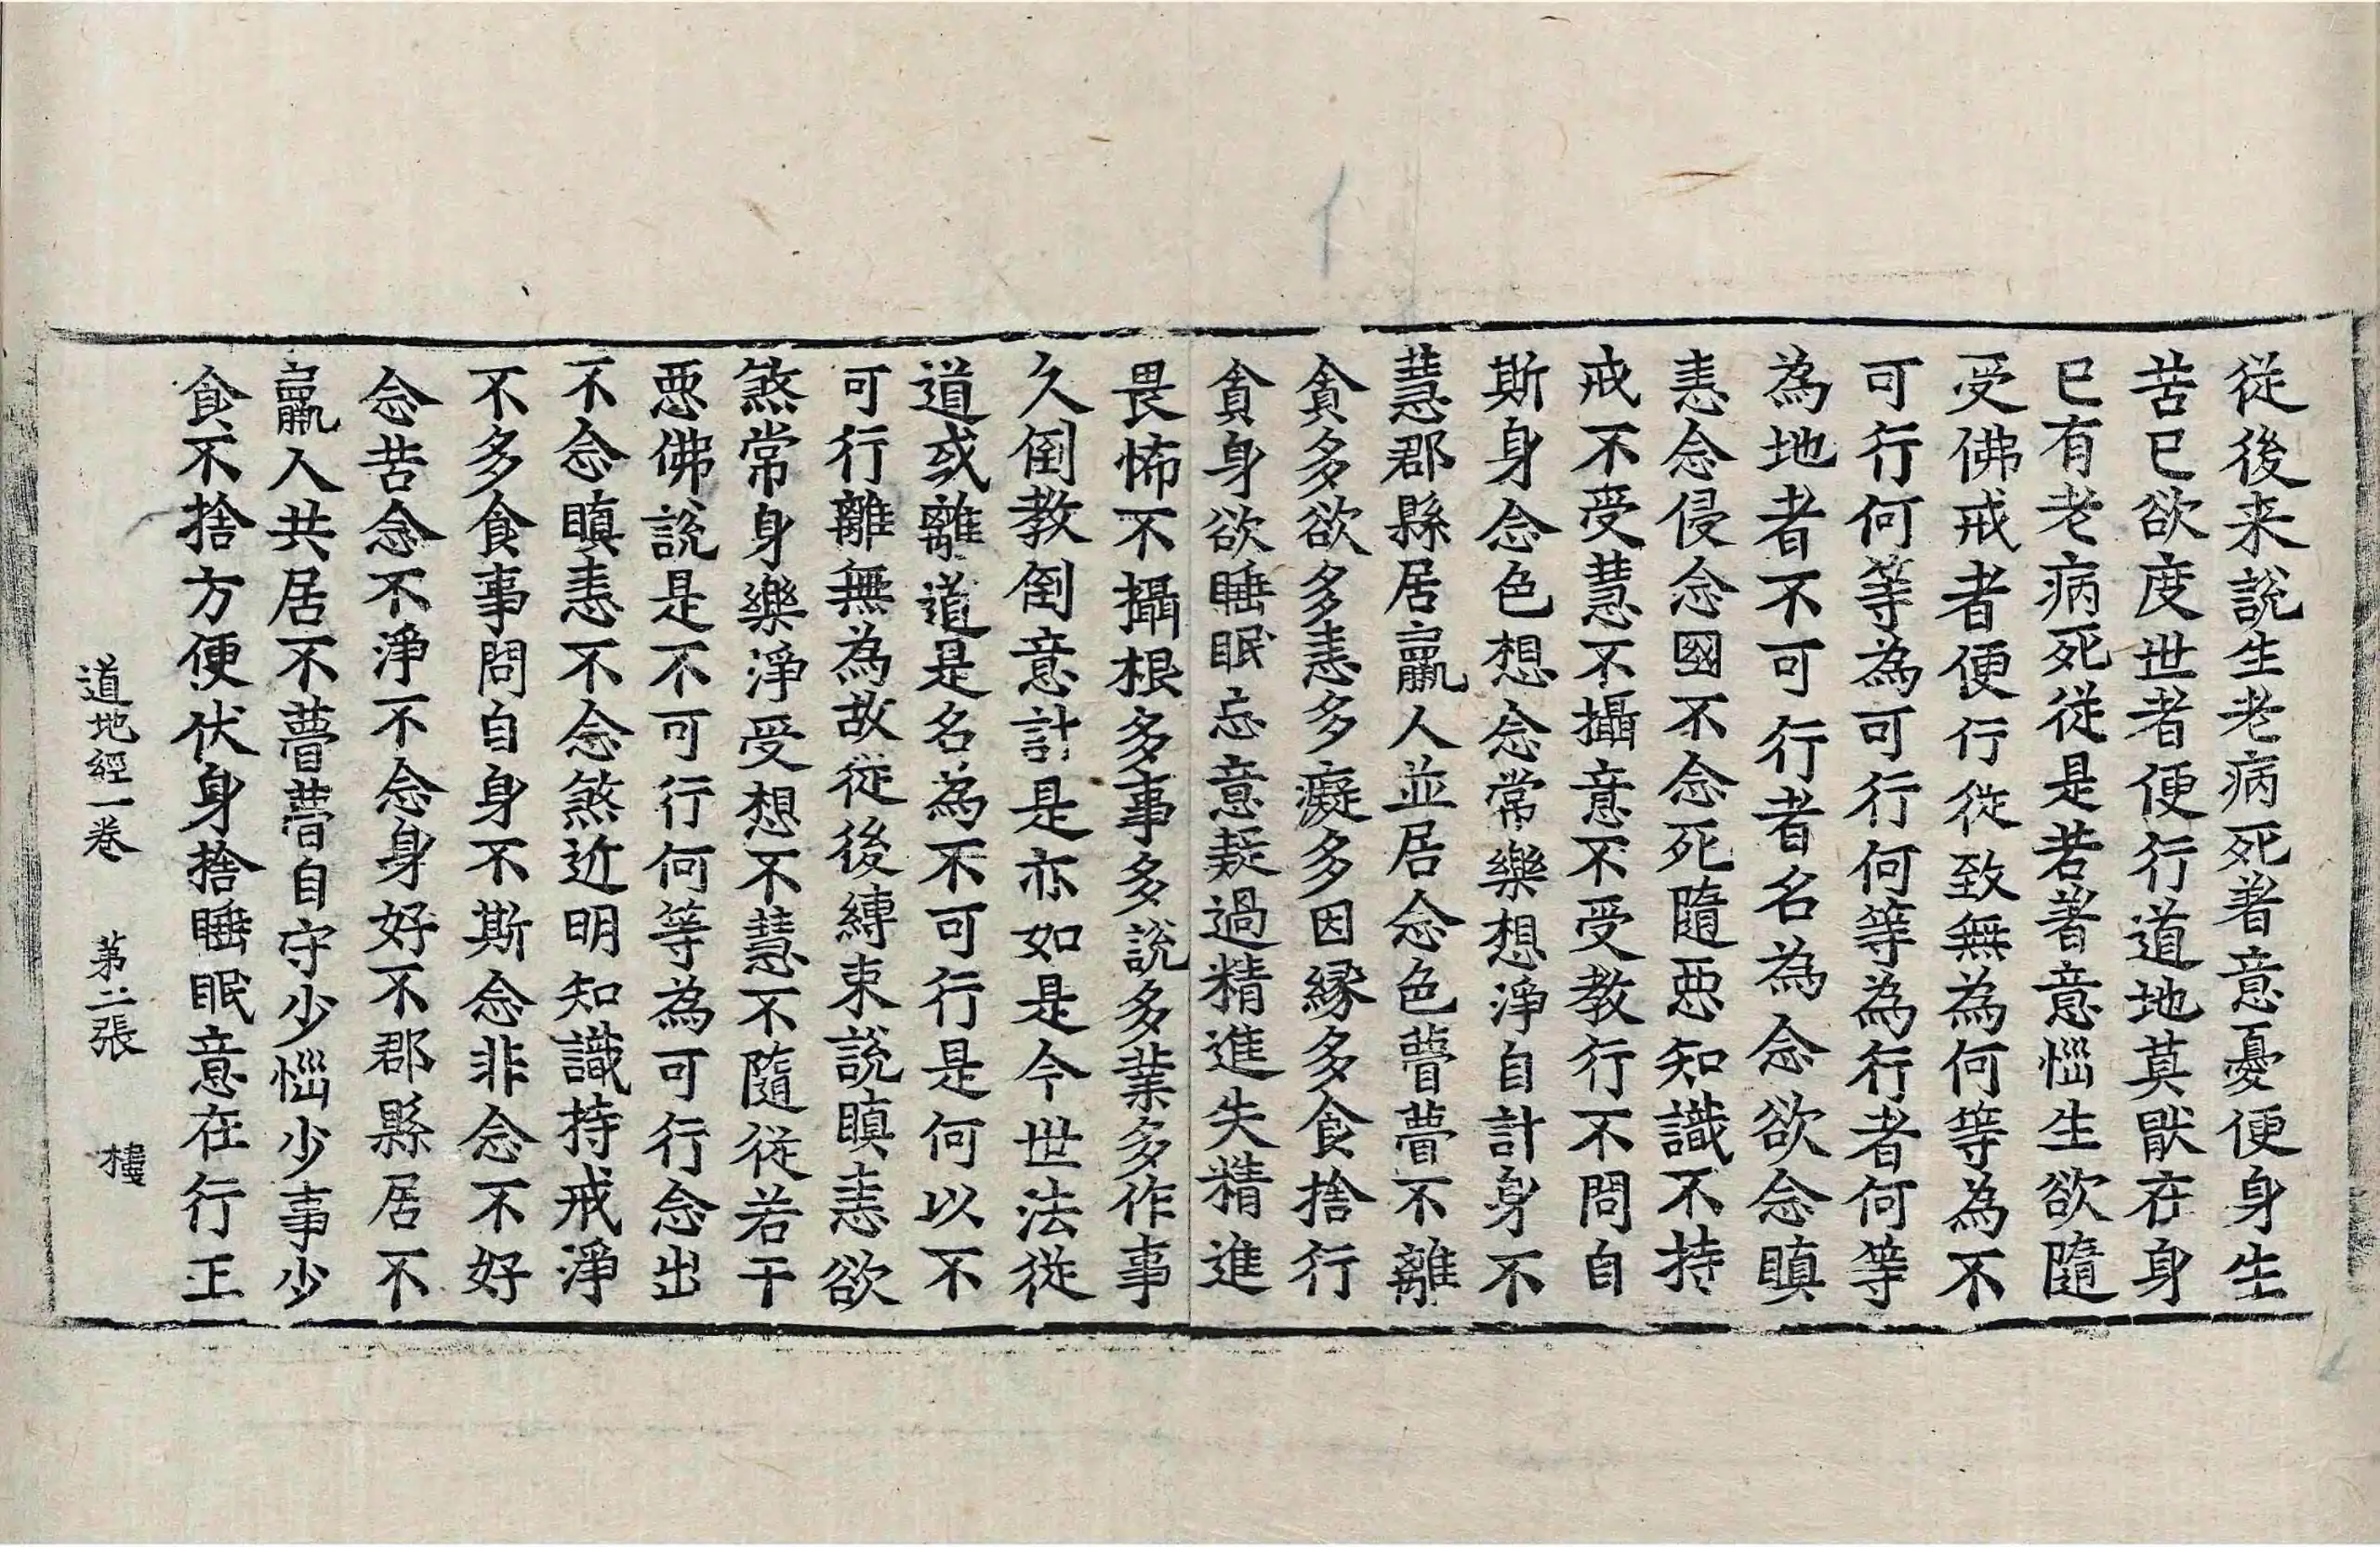 從後来說生老病死著意憂便身生
苦已欲度世者便行道地莫猒在身
已有老病死從是若著意惱生欲隨
受佛戒者便行從致無為何等為不
可行何等為可行何等為行者何等
為地者不可行者名為念欲念瞋
恚念侵念國不念死隨惡知識不持
戒不受慧不攝意不受教行不問自
斯身念色想念常樂想淨自計身不
慧郡縣居羸人並居念色瞢瞢不離
貪多欲多恚多癡多因縁多食捨行
貪身欲睡眠忘意疑過精進失精進
畏怖不攝根多事多說多業多作事
久倒教倒意計是亦如是今世法從
道或離道是名為不可行是何以不
可行離無為故從後縛束說瞋恚欲
煞常身樂淨受想不慧不隨從若干
惡佛說是不可行何等為可行念出
不念瞋恚不念煞近明知識持戒淨
不多食事問自身不斯念非念不好
念苦念不淨不念身好不郡縣居不
羸人共居不瞢瞢自守少惱少事少
食不捨方便伏身捨睡眠意在行正
道地經一卷 第二張 樓